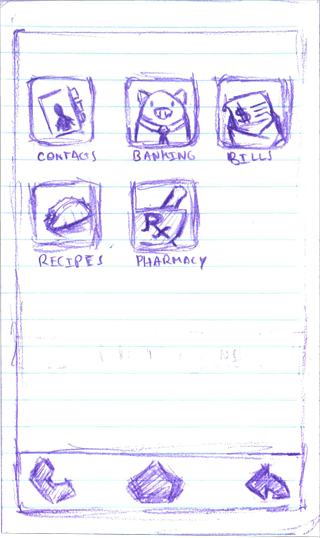 CONTACTS BANKING BILLS
$
Rx
RECIPES PHARMACY